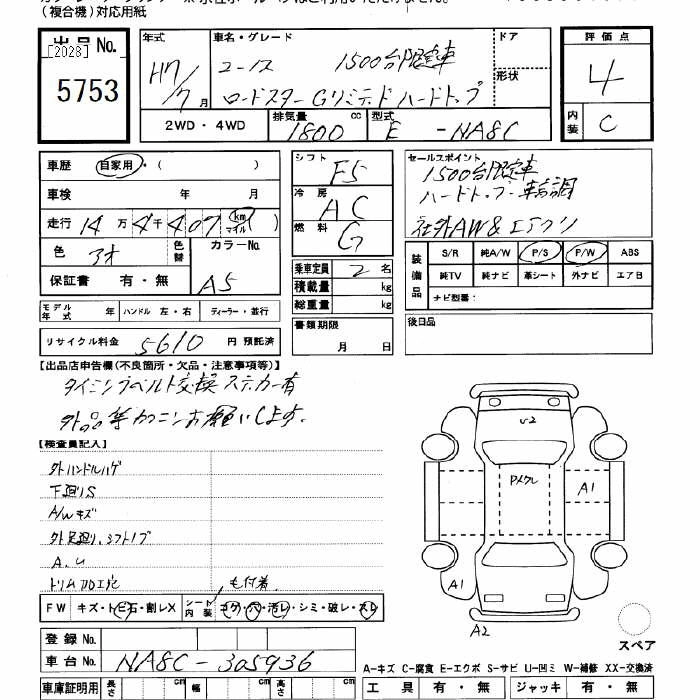 (複合機)対応用紙
出品 No. [2028] 5753
年式 H7/7月
車名・グレード ユーノス 1500台限定車
ロードスター Gリミテッド ハードトップ
ドア
形状
2WD・4WD 排気量 1800 cc 型式 E - NA8C
評価点 4
内装 C
車歴 自家用・( )
車検 年 月
走行 14万 4千 407 km マイル
色 アオ 色替 カラーNo. A5
保証書 有・無
シフト F5
冷房 AC
燃料 G
乗車定員 2 名
積載量 kg
総重量 kg
セールスポイント
1500台限定車
ハードトップ・車高調
社外AW & エアクリ
装備品 S/R 純A/W P/S P/W ABS
純TV 純ナビ 革シート 外ナビ エアB
ナビ型番:
モデル年式 年 ハンドル 左・右 ディーラー・並行
書類期限 月 日
後日品
リサイクル料金 5610 円 預託済
【出品店申告欄(不良箇所・欠品・注意事項等)】
タイミングベルト交換ステッカー有
外品等カクニンお願いします。
【検査員記入】
外ハンドルハゲ
下廻りS
A/Wキズ
外足廻り、シフトノブ
A.U
トリム加工穴
モ付着
FW キズ・トビ石・割レX シート内装 コゲ・穴・汚レ・シミ・破レ・スレ
U2
Pメクレ
A1
A1
A2
スペア
登録 No.
車台 No. NA8C-305936
A-キズ C-腐食 E-エクボ S-サビ U-凹ミ W-補修 XX-交換済
車庫証明用 長さ cm 幅 cm 高さ cm
工具 有・無 ジャッキ 有・無